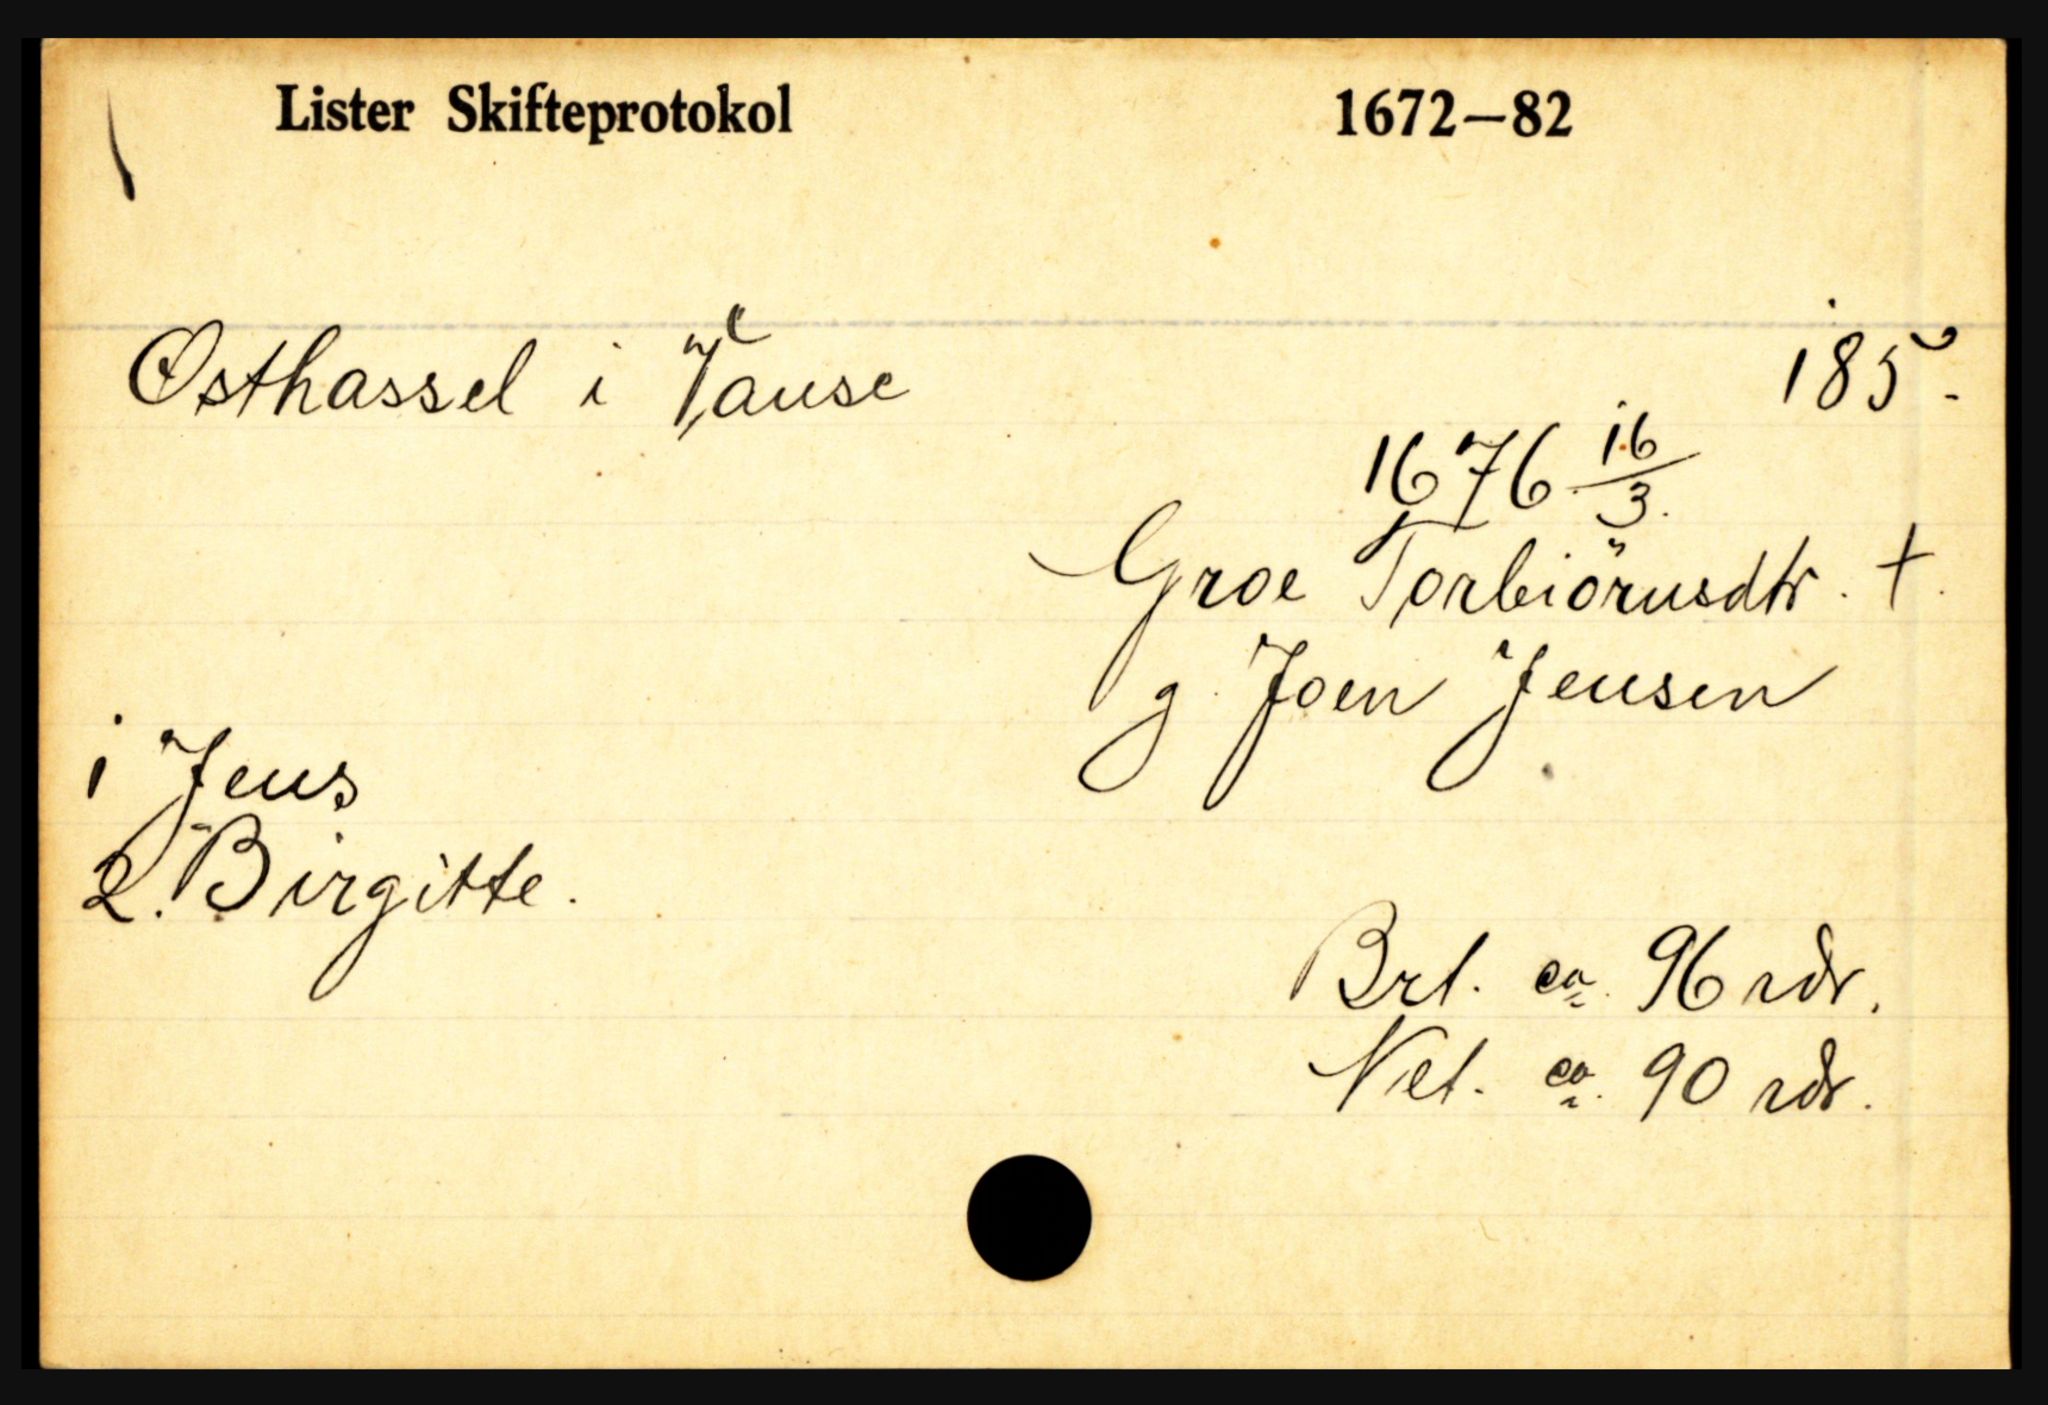 Lister Skifteprotokol 1672—82
Østhassel i Vanse 185.
1676 16/3.
Groe Torbiörnsdtr. †.
g. Joen Jensen
1 Jens
2. Birgitte.
Brt. ca. 96 rdr.
Net. ca. 90 rdr.